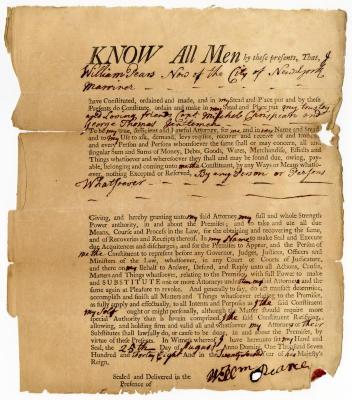 KNOW All MEN by these presents, That, I
William Dears Now of the City of New York
Marriner
have Constituted, ordained and made, and in my Stead and Place put and by these
Presents do Constitute, ordain and make in my Stead and Place put my trusty
and Loving friends Capt Michel Christeatt and
George Thomas Gentleman
To be my true, sufficient and Lawful Attorney, for me, and in my Name and Stead
and to my Use to ask, demand, levy, require, recover and receive of and from all
and every Person and Persons whomsoever the same shall or may concern, all and
singular Sum and Sums of Money, Debts, Goods, Wares, Merchandise, Effects and
Things whatsoever and wheresoever they shall and may be found due, owing, pay-
able, belonging and coming unto me the Constituent, by any Ways or Means whatso-
ever, nothing Excepted or Reserved, By any Person or Persons
Whatsoever
Giving, and hereby granting unto my said Attorney my full and whole Strength
Power authority, in and about the Premises; and to take and use all due
Means, Course and Process in the Law, for the obtaining and recovering the same,
and of Recoveries and Receipts thereof, In my Name to make Seal and Execute
due Acquittances and discharges; and for the Premises to Appear, and the Person of
me the Constituent to represent before any Governour, Judges, Justices, Officers and
Ministers of the Law, whatsoever, in any Court or Courts of Judicature,
and there on my Behalf to Answer, Defend, and Reply unto all Actions, Causes,
Matters and Things whatsoever, relating to the Premises, with full Power to make
and SUBSTITUTE one or more Attorneys under my said Attorney and the
same again at Pleasure to revoke. And generally to say, do, act transact determine,
accomplish and finish all Matters and Things whatsoever relating to the Premises,
as fully amply and effectually, to all Intents and Purposes as I the said Constituent
my Self ought or might personally, although the Matter should require more
special Authority than is herein comprised, I the said Constituent Ratifying,
allowing, and holding firm and valid all and whatsoever my Attorney or their
Substitutes shall lawfully do, or cause to be done, in and about the Premises, by
virtue of these Presents. In Witness whereof I have hereunto set my Hand and
Seal, the 25th Day of August Anno Domini, One Thousand Seven
Hundred and thirty Eight And in the Year of his Majesty's
Reign,
Willem Deare
Sealed and Delivered in the
Presence of